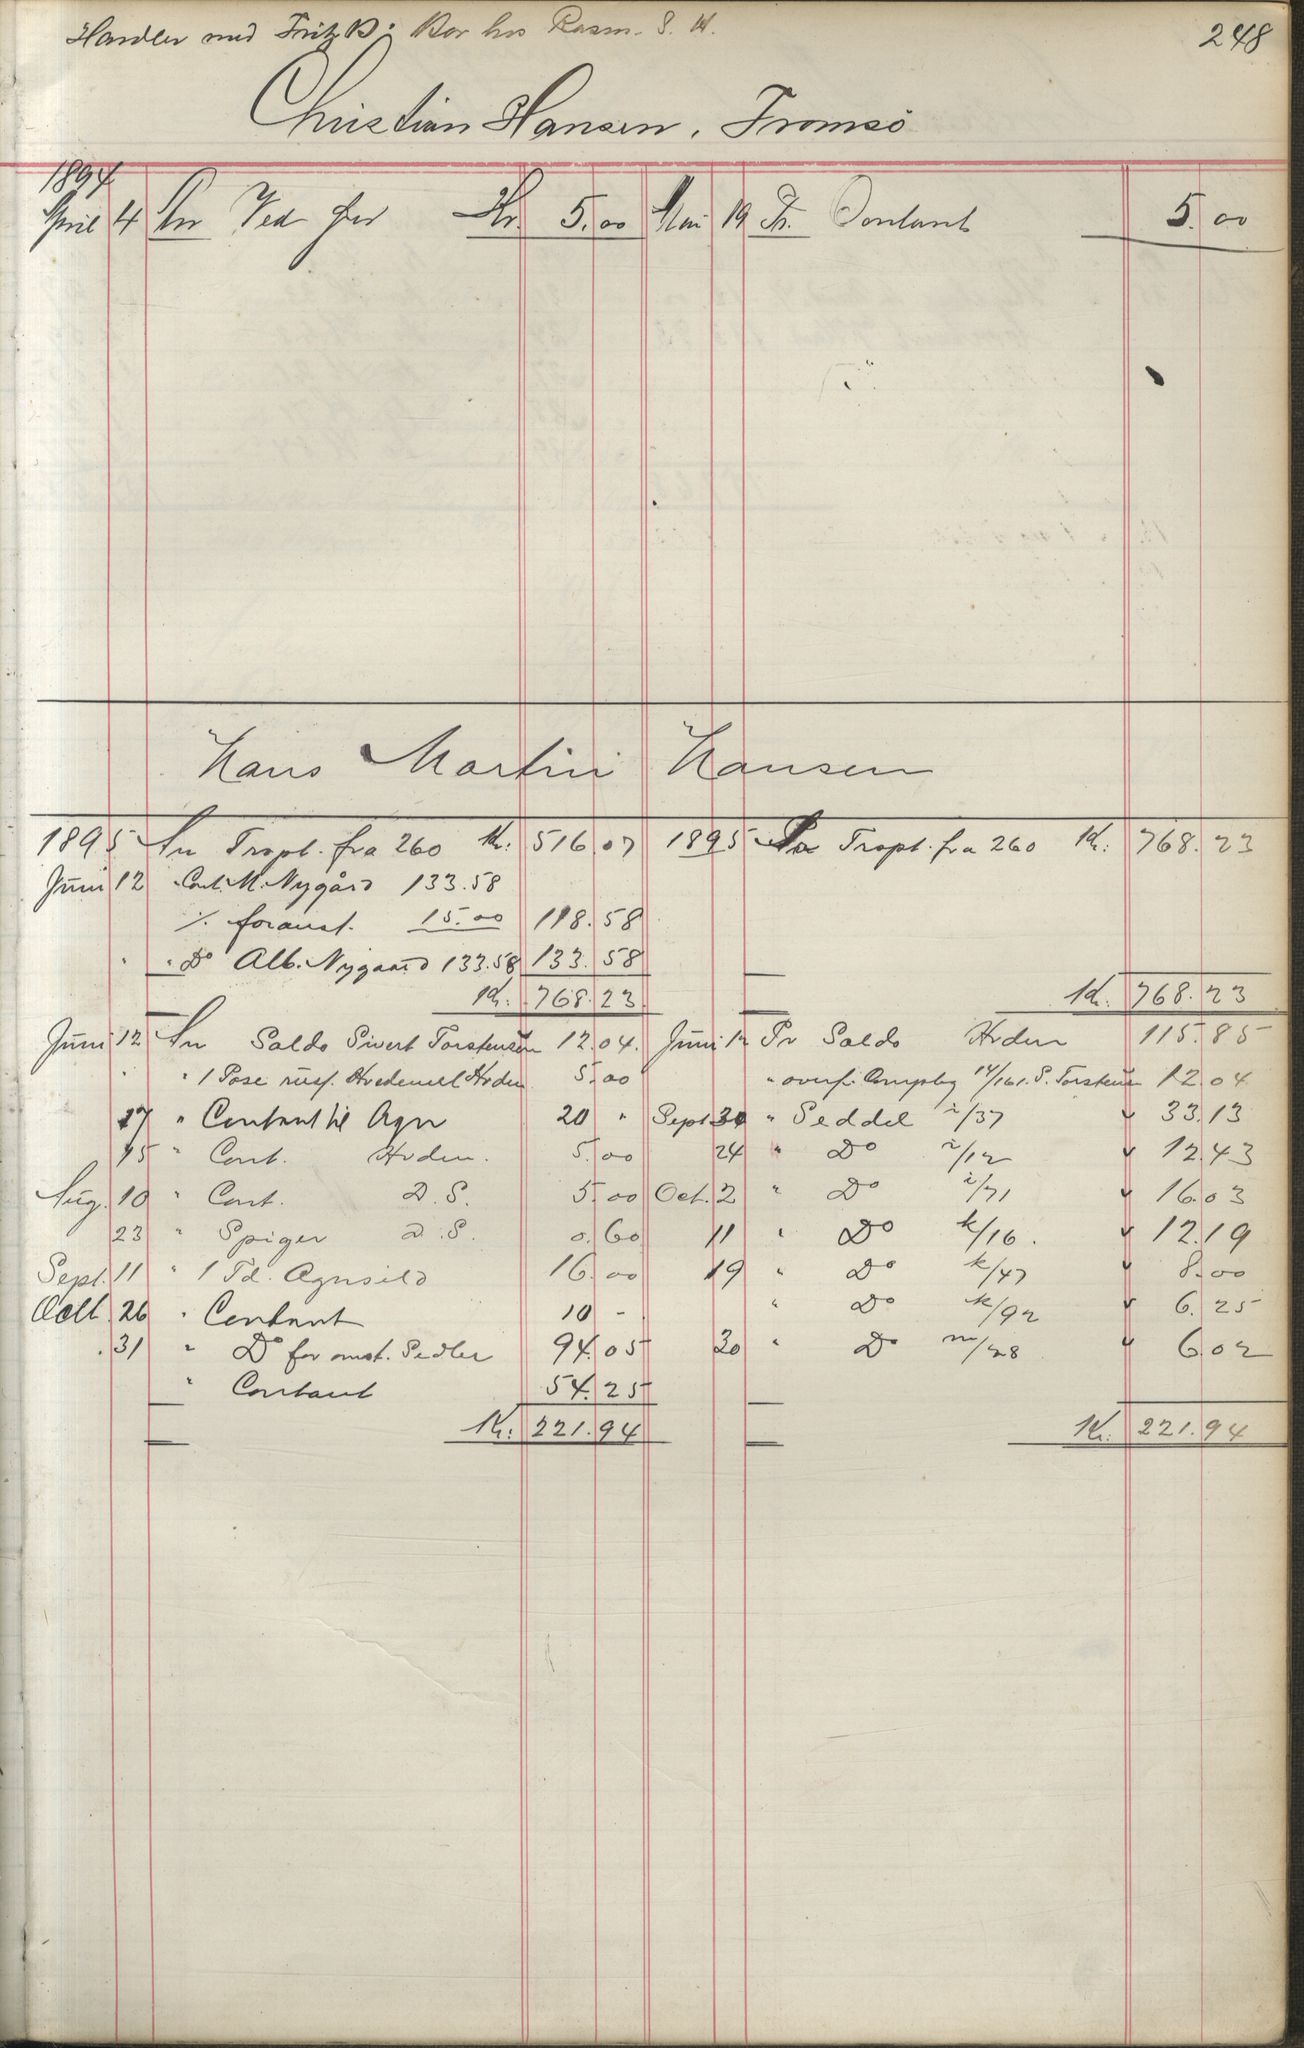 Handler med Fritz K: Bor hos Rasm. S. H.
248
Christian Hansen, Tromsø
1894
April 4 An Ved før Kr. 5.00 Mai 19 Pr. Contant 5.00
Hans Martin Hansen
1895 An Trspt. fra 260 Kr: 516.07 1895 Pr Trspt. fra 260 Kr: 768.23
Juni 12 " Cont. M. Nygård 133.58
% foranst. 15.00 118.58
" " Do Alb. Nygaard 133.58 133.58
Kr: 768.23 Kr: 768.23
Juni 12 An Saldo Sivert Torstensen 12.04. Juni 12 Pr Saldo Hvden 115.85
" " 1 Pose rusf. Hvedemel Hvden 5.00 " overf. 14/161. S. Torstensen 12.04
17 " Contant til Agn 20 " Sept 30 " Seddel i/37 33.13
15 " Cont. Hvden. 5.00 24 " Do i/12 12.43
Aug. 10 " Cont. D.S. 5.00 Oct. 2 " Do i/71 16.03
23 " Spiger D.S. 0.60 11 " Do k/16. 12.19
Sept. 11 " 1 Td. Agnsild 16.00 19 " Do k/47 8.00
Octb. 26 " Contant 10 - " Do k/92 6.25
31 " Do for omst. Sedler 94.05 30 " Do m/28 6.02
" Contant 54.25
Kr: 221.94 Kr: 221.94